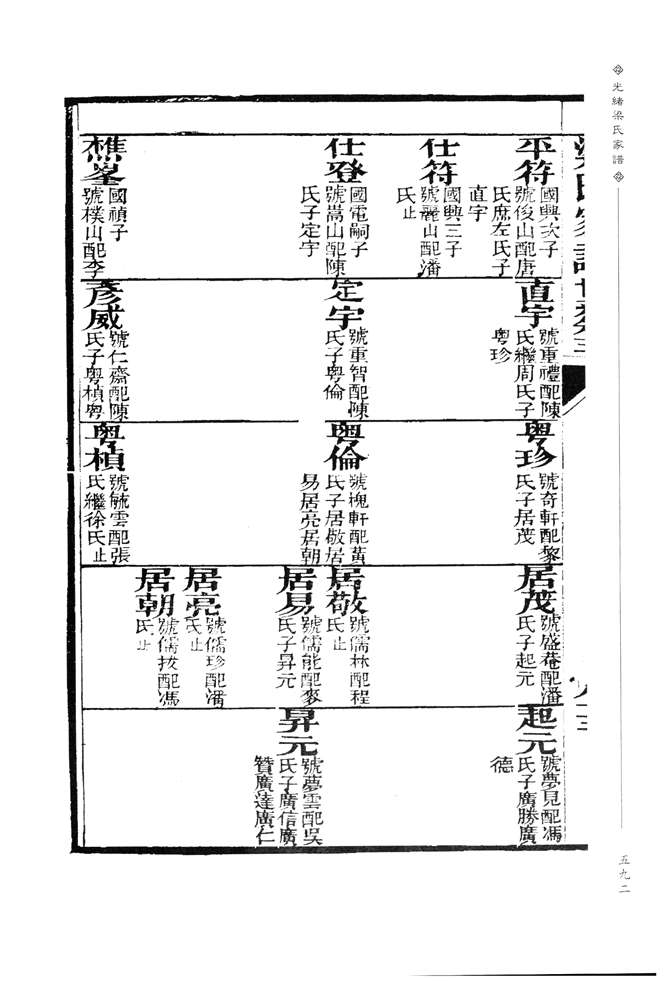 光緒梁氏家譜
五九二
平符
國興次子
號俊山配唐
氏庶左氏子
直宇
仕符
國興三子
號麗山配潘
氏止
仕登
國電嗣子
號嵩山配陳
氏子定宇
樵峯
國禎子
號樸山配李
直宇
號重禮配陳
氏繼周氏子
粤珍
定宇
號重智配陳
氏子粤倫
彥威
號仁齋配陳
氏子粤楨粤
粤珍
號奇軒配黎
氏子居茂
粤倫
號槐軒配黃
氏子居敬居
易居亮居朝
粤楨
號毓雲配張
氏繼徐氏止
居茂
號盛菴配潘
氏子起元
居敬
號儒林配程
氏止
居易
號儒能配麥
氏子昇元
居亮
號儒珍配潘
氏止
居朝
號儒拔配馮
氏止
起元
號夢見配馮
氏子廣勝廣
德
昇元
號夢雲配吳
氏子廣信廣
贊廣達廣仁